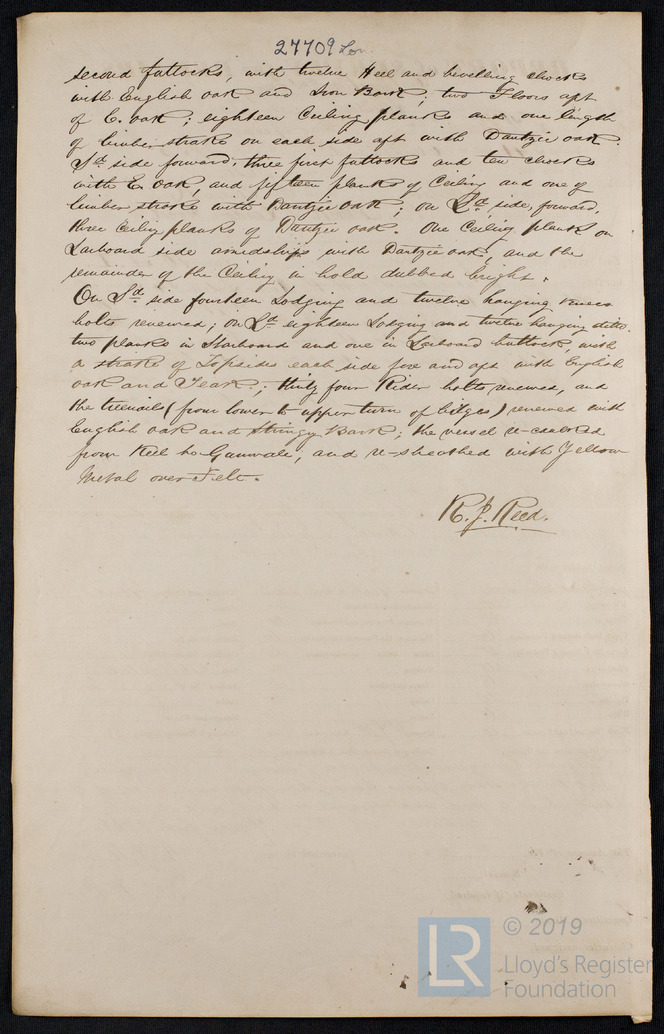 27709 Lon.
second futtocks, with twelve Heel and bevelling chocks
with English oak and Iron Bark; two Floors aft
of E. oak; eighteen Ceiling planks and one length
of limber strake on each side aft with Dantzic oak.
Sd side forward, three first futtocks and ten chocks
with E. oak, and fifteen planks of Ceiling and one of
limber strake with Dantzic oak; on Ld side, forward,
three Ceiling planks of Dantzic oak. One Ceiling plank on
Larboard side amidships with Dantzic oak, and the
remainder of the Ceiling in hold dubbed bright.
On Sd side fourteen Lodging and twelve hanging knees
bolts renewed; on Ld eighteen Lodging and twelve hanging ditto.
two planks in Starboard and one in Larboard buttock, with
a strake of Topsides each side fore and aft with English
oak and Teak; thirty four Rider bolts renewed, and
the treenails (from lower to upper turn of bilges) renewed with
English oak and Stringy Bark; the vessel re-caulked
from Keel to Gunwale, and re-sheathed with Yellow
Metal over Felt.
R. J. Reed.
© 2019
LR
Lloyd's Register
Foundation